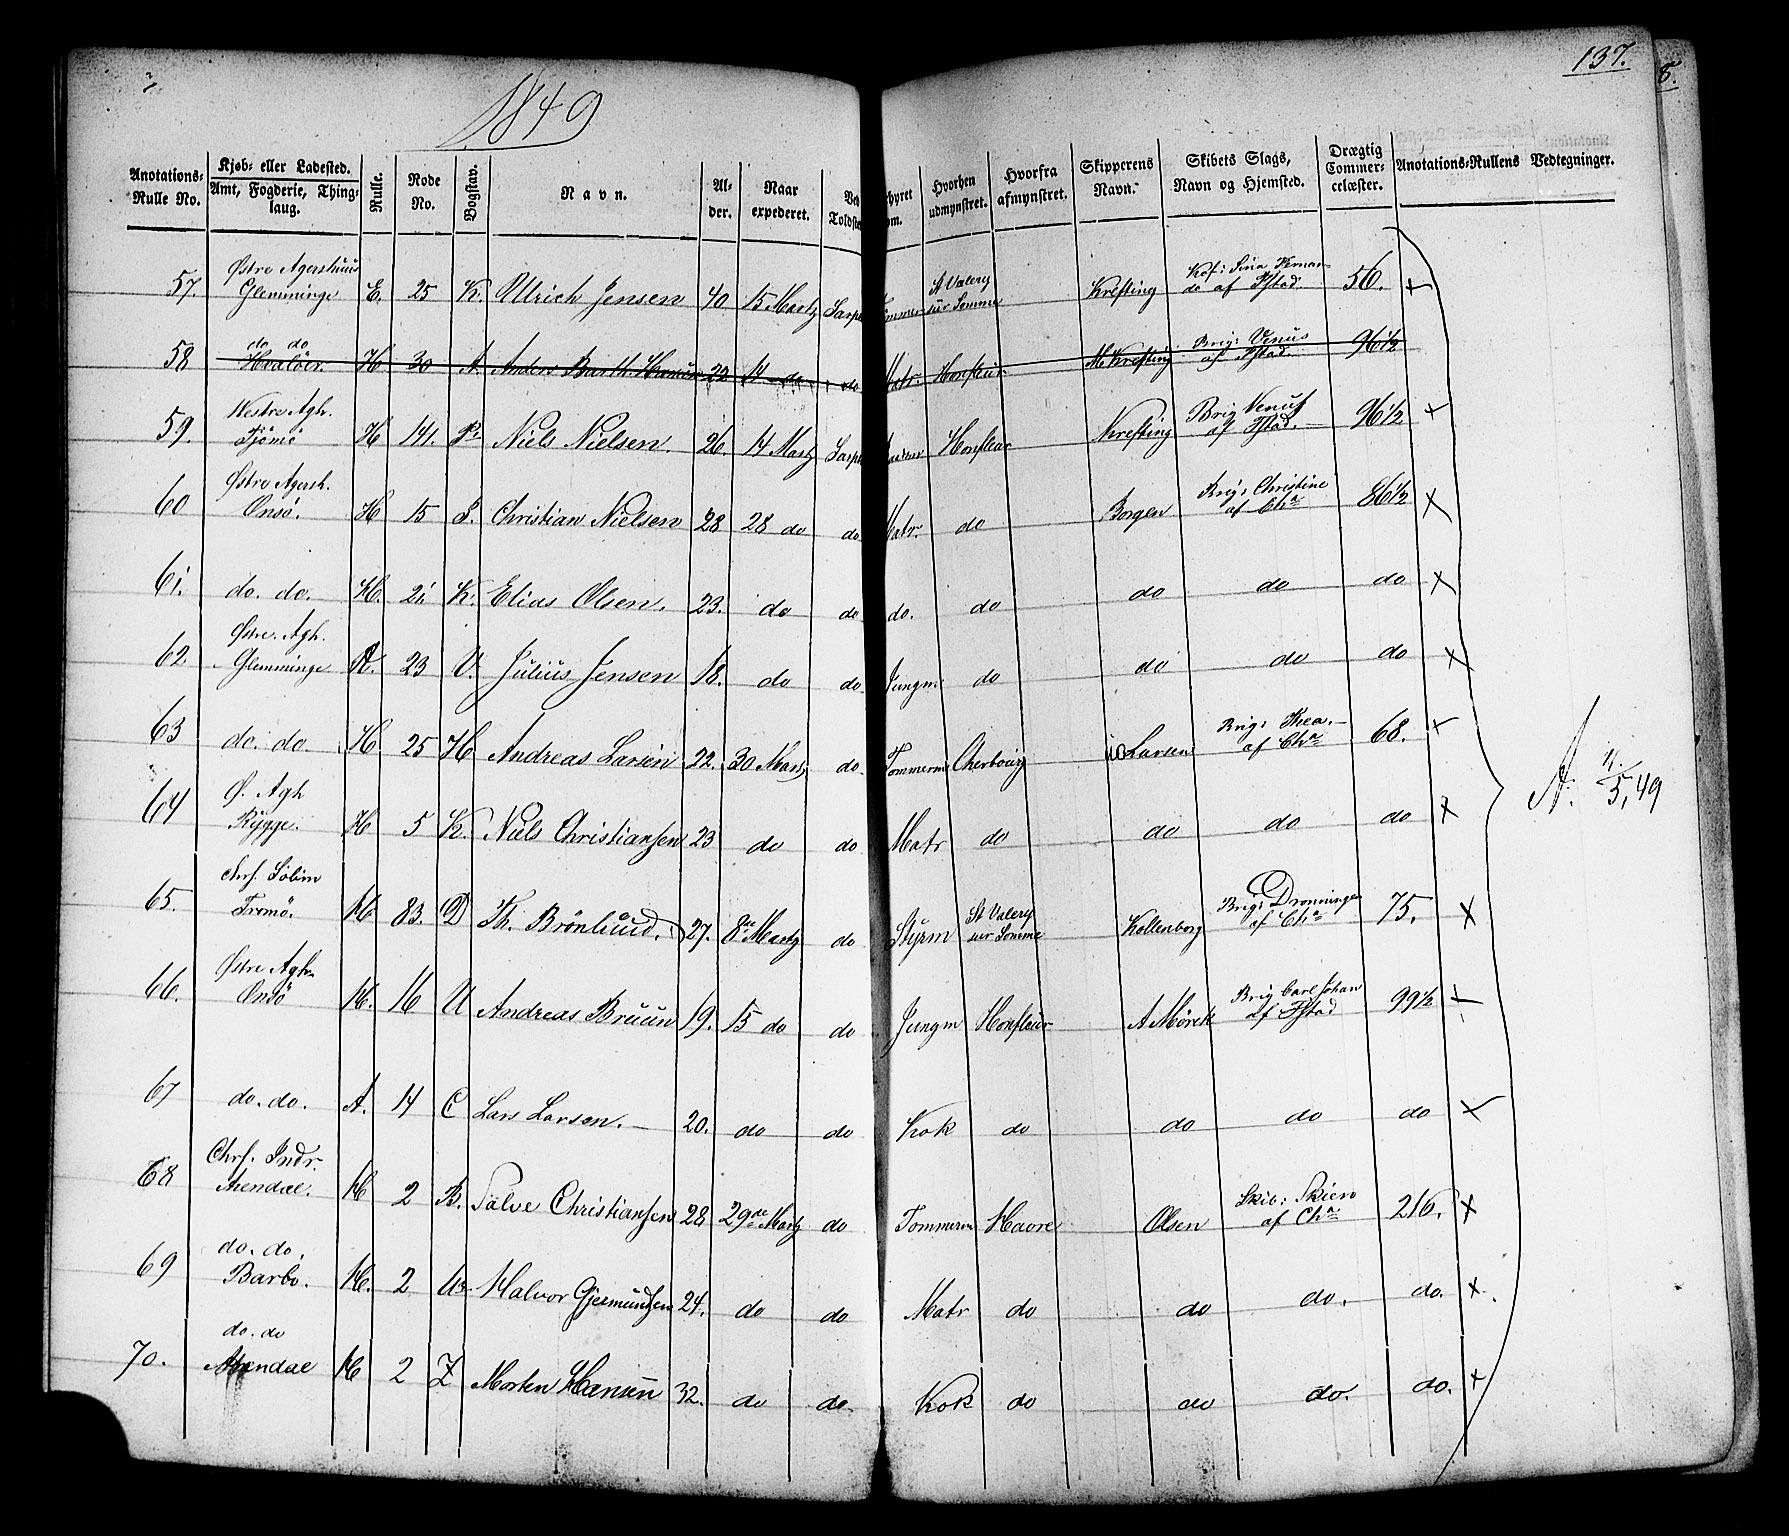 1849
137.
8.
Anotations-Rulle No. Kjøb- eller Ladested. Amt, Fogderie, Thinglaug. Rulle. Node No. Bogstav. Navn. Alder. Naar expederet. Ved Toldste Hvorhen udmynstret. Hvorfra afmynstret. Skipperens Navn. Skibets Slags, Navn og Hjemsted. Drægtig Commercelæster. Anotations-Rullens Vedtegninger.
57. Østre Agershuus Glemminge E. 25 K. Ulrich Jensen 40 15 Martz Sarps St Valery sur Somme Krefting af Fstad. 56. x
58 do do Hvaløer. H 30 A. Anders Barth Hansen 22 14 do do Matr. Honfleur M Krefting Brig: Venus af Fstad. 96 1/2
59. Westre Agh. Tjömö H 141. P. Niels Nielsen. 26. 14 Martz Sarps Honfleur Krefting Brig Venus af Fstad. 96 1/2 x
60 Østre Agersh. Onsö. H 15 P. Christian Nielsen 28 28 do do Matr. do Borgen Brig: Christine af Cha 86 1/2 x
61. do. do. H. 21. K. Elias Olsen. 23. do do do. do do do do x
62 Østre. Agh. Glemminge A. 23 V. Julius Jensen 18. do do Jungm do do do do x
63 do. do H 25 H Andreas Larsen 22. 30 Martz do. Tommerm Cherbourg Larsen Brig: Thea. af Cha 68. x
64 Ø. Agh Rygge. H 5 K. Niels Christiansen 23 do do Matr do do do do x
A. 11/5, 49
65. Tromö. H 83. D Th. Brönlund. 27. 8de Martz do Styrm St Valery sur Somme Kollenborg Brig: Dronningen af Cha 75. x
66. Østre Agh. Onsö H. 16 U Andreas Bruun 19. 15 do do Jungm Honfleur A Mörck Brig Carl Johan af Fstad 99 1/2 x
67 do. do. A. 14 C Lars Larsen. 20. do do Kok do do do do x
68 Chrs. Indr. Arendal. H 2 B. Salve Christiansen 28 29de Martz do Tommerm Havre Olsen Skib: af Cha 216. x
69 do. do. Barbo. H. 2 Halvor Gjermundsen 24. do do Matr do do do. do. x.
70. do. do Arendal H 2 Z Morten Hansen 32. do do. Kok do do do. do. x